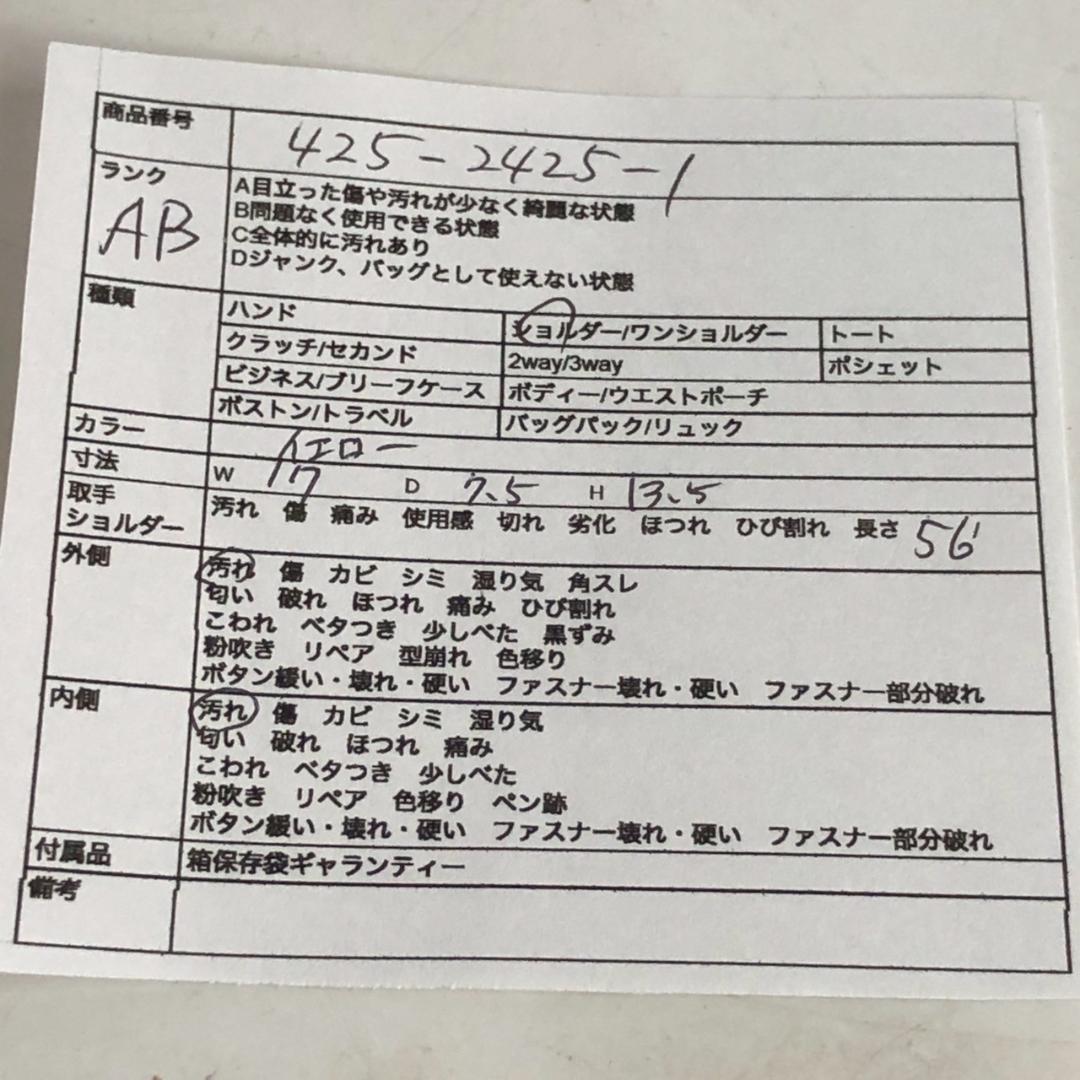 商品番号 425-2425-1
ランク AB
A目立った傷や汚れが少なく綺麗な状態
B問題なく使用できる状態
C全体的に汚れあり
Dジャンク、バッグとして使えない状態
種類 ハンド ショルダー/ワンショルダー トート
クラッチ/セカンド 2way/3way ポシェット
ビジネス/ブリーフケース ボディー/ウエストポーチ
ボストン/トラベル バッグパック/リュック
カラー イエロー
寸法 W 17 D 7.5 H 13.5
取手
ショルダー
汚れ 傷 痛み 使用感 切れ 劣化 ほつれ ひび割れ 長さ 56
外側 汚れ 傷 カビ シミ 湿り気 角スレ
匂い 破れ ほつれ 痛み ひび割れ
こわれ ベタつき 少しべた 黒ずみ
粉吹き リペア 型崩れ 色移り
ボタン緩い・壊れ・硬い ファスナー壊れ・硬い ファスナー部分破れ
内側 汚れ 傷 カビ シミ 湿り気
匂い 破れ ほつれ 痛み
こわれ ベタつき 少しべた
粉吹き リペア 色移り ペン跡
ボタン緩い・壊れ・硬い ファスナー壊れ・硬い ファスナー部分破れ
付属品 箱保存袋ギャランティー
備考